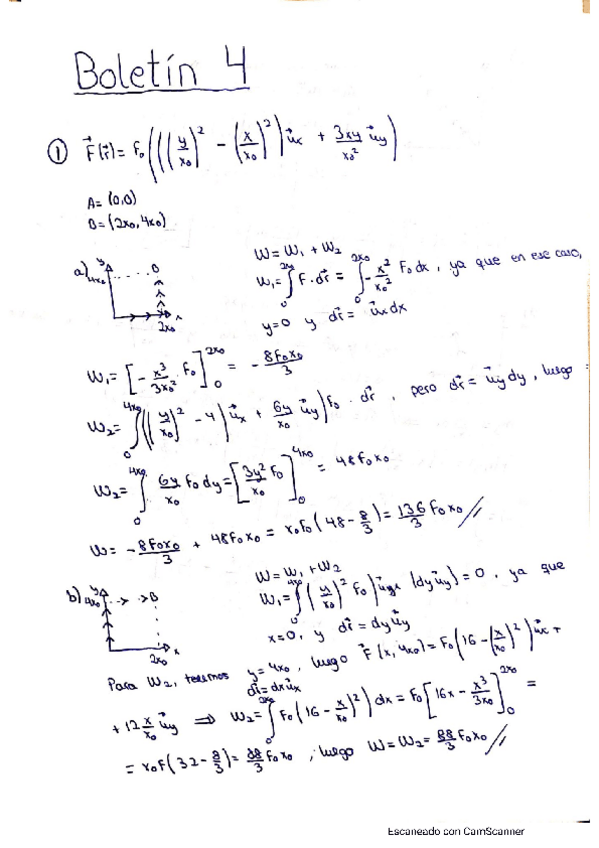 Boletín 4
① F⃗(r⃗) = F₀(((y/x₀)² - (x/x₀)²)u⃗x + 3xy/x₀² u⃗y)
A = (0,0)
B = (2x₀, 4x₀)
a) y 4x₀ B x 2x₀
W = W₁ + W₂
W₁ = ∫₀^2x₀ F · dr⃗ = ∫₀^2x₀ - x²/x₀² F₀ dx, ya que en ese caso,
y=0 y dr⃗ = u⃗x dx
W₁ = [- x³/3x₀² F₀]₀^2x₀ = - 8F₀x₀/3
W₂ = ∫₀^4x₀ ((y/x₀)² - 4)u⃗x + 6y/x₀ u⃗y)F₀ · dr⃗, pero dr⃗ = u⃗y dy, luego
W₂ = ∫₀^4x₀ 6y/x₀ F₀ dy = [3y²/x₀ F₀]₀^4x₀ = 48F₀x₀
W = - 8F₀x₀/3 + 48F₀x₀ = x₀F₀(48 - 8/3) = 136/3 F₀x₀ //
b) y 4x₀ B x 2x₀
W = W₁ + W₂
W₁ = ∫₀^4x₀ (y/x₀)² F₀)u⃗x (dy u⃗y) = 0, ya que
x=0, y dr⃗ = dy u⃗y
Para W₂, tenemos y = 4x₀, luego F⃗(x, 4x₀) = F₀(16 - (x/x₀)²)u⃗x +
dr⃗ = dx u⃗x
+ 12 x/x₀ u⃗y ⇒ W₂ = ∫₀^2x₀ F₀(16 - x/x₀)²) dx = F₀[16x - x³/3x₀]₀^2x₀ =
= x₀F(32 - 8/3) = 88/3 F₀x₀, luego W = W₂ = 88/3 F₀x₀ //
Escaneado con CamScanner